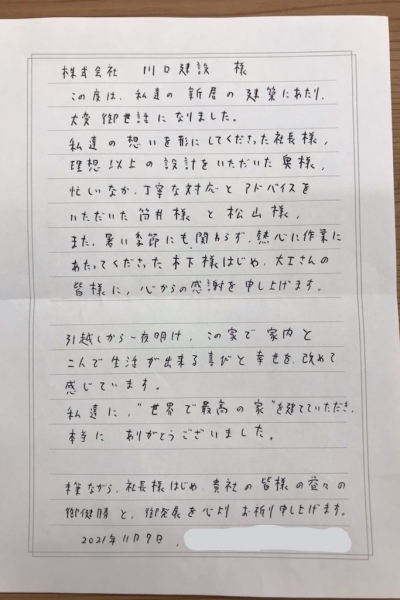 株式会社 川口建設 様
この度は、私達の新居の建築にあたり、
大変御世話になりました。
私達の想いを形にしてくださった社長様、
理想以上の設計をいただいた奥様、
忙しいなか、丁寧な対応とアドバイスを
いただいた筒井様と松山様、
また、暑い季節にも関わらず、熱心に作業に
あたってくださった木下様はじめ、大工さんの
皆様に、心からの感謝を申し上げます。
引越しから一夜明け、この家で家内と
二人で生活が出来る喜びと幸せを、改めて
感じています。
私達に、"世界で最高の家"を建てていただき、
本当に ありがとうございました。
末筆ながら、社長様はじめ、貴社の皆様の益々の
御健勝と、御発展を心より お祈り申し上げます。
2021年11月9日、